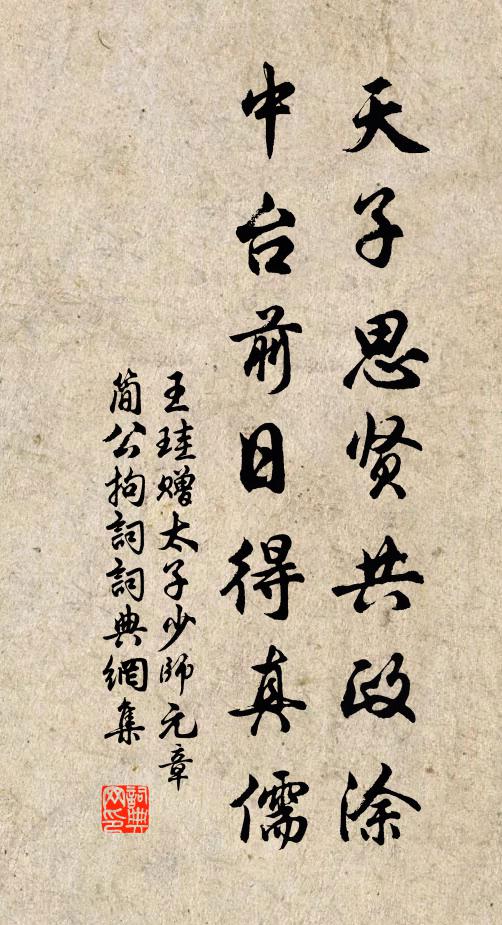 天子思贤共政涂
中台前日得真儒
王珪赠太子少師元章
简公拘詞詞典網集
詞典
网印